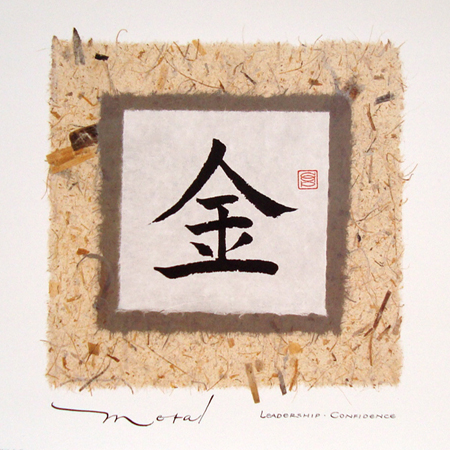 金
Metal
LEADERSHIP - CONFIDENCE